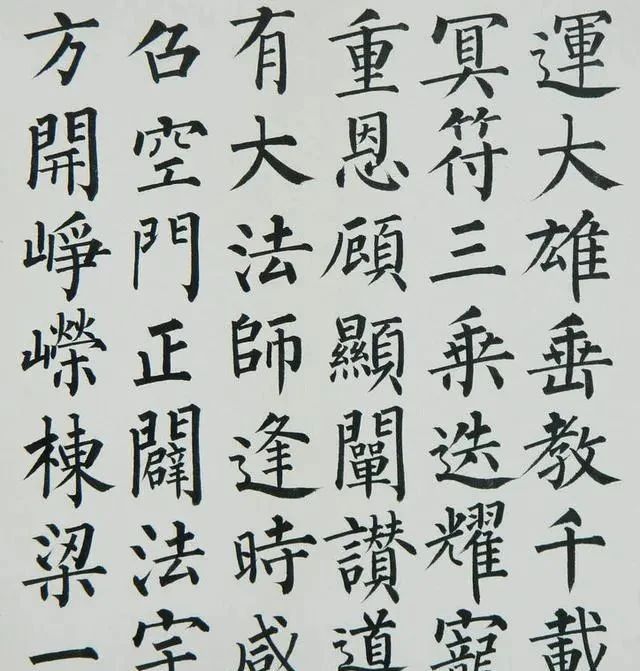 運大雄垂教千載
冥符三乗迭耀寵
重恩顧顯闡讚道
有大法師逢時感
召空門正闢法宇
方開崢嶸棟梁一